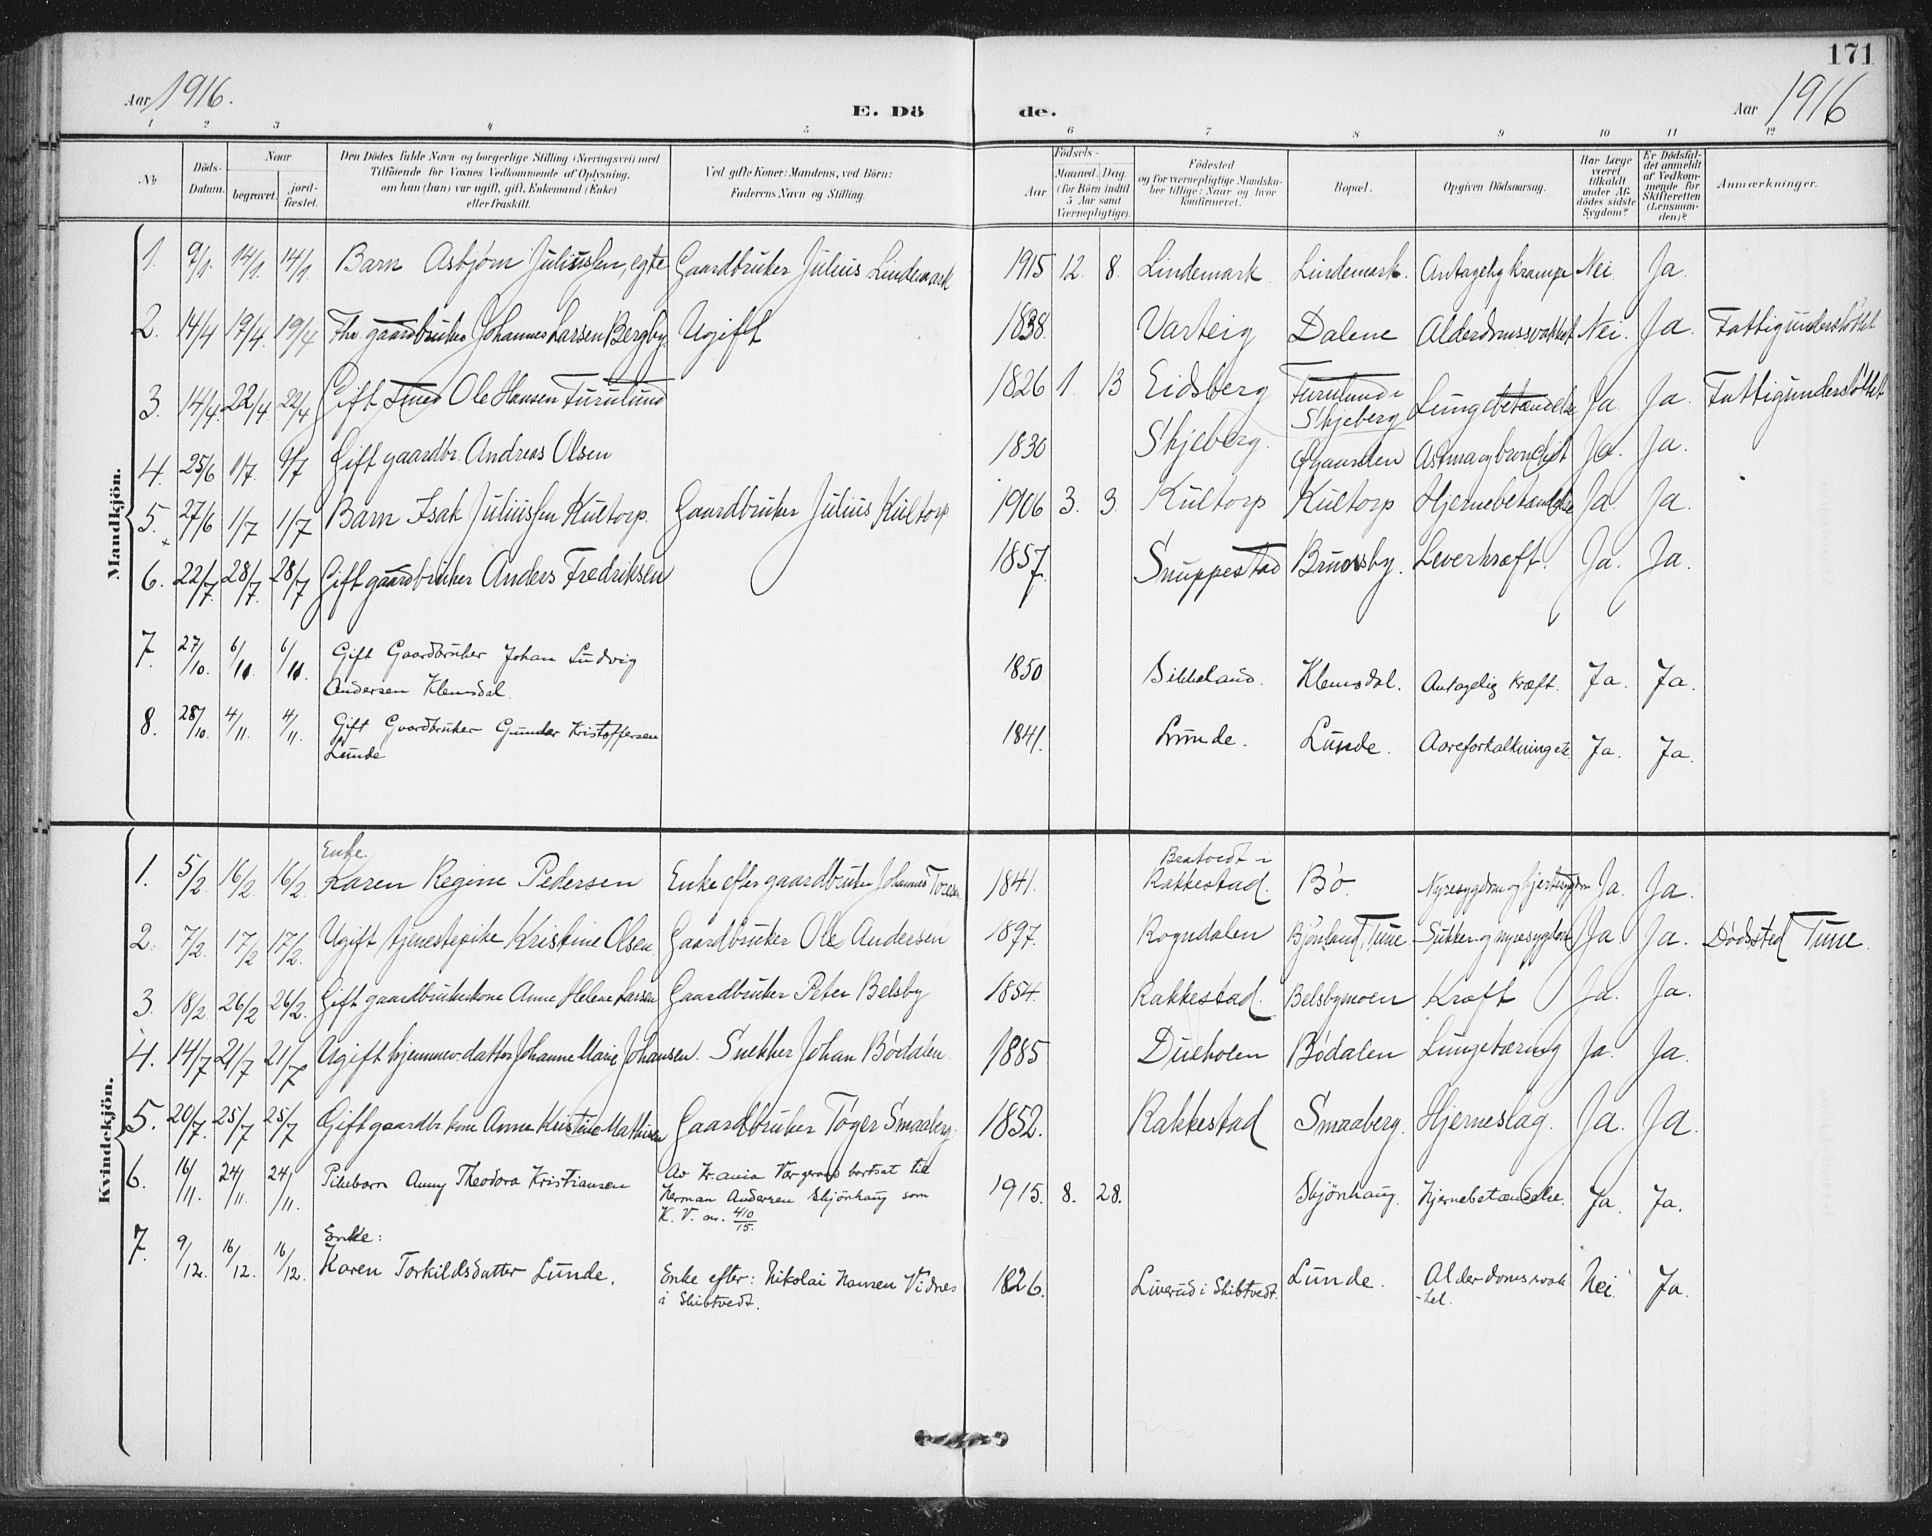 171
Aar 1916.
E. Dö de.
Aar 1916
1 2 3 4 5 6 7 8 9 10 11 12
No
Döds-Datum.
Naar
begravet.
jord-fæstet.
Den Dödes fulde Navn og borgerlige Stilling (Næringsvei) med
Tilföiende for Voxnes Vedkommende af Oplysning,
om han (hun) var ugift, gift, Enkemand (Enke)
eller fraskilt.
Ved gifte Koner: Mandens, ved Börn:
Faderens Navn og Stilling.
Födsels-
Aar
Maaned. Dag.
(for Börn indtil
5 Aar samt
Værnepligtige).
Födested
og for værnepligtige Mandska-
ber tillige: Naar og hvor
konfirmeret.
Bopæl.
Opgiven Dödsaarsag.
Har Læge
været
tilkaldt
under Af-
dödes sidste
Sygdom?
Er Dödsfal-
det anmeldt
af Vedkom-
mende for
Skifteretten
(Lensman-
den)?
Anmærkninger.
Mandkjön.
1. 9/1. 14/1. 14/1 Barn Asbjørn Juliussen, egte Gaardbruker Julius Lindemark 1915 12. 8. Lindemark Lindemark. Antagelig krampe Nei. Ja.
2. 14/4 19/4. 19/4 Fhv. gaardbruker Johannes Larsen Bergby. Ugift 1838. Varteig Dalene Alderdomssvakhet Nei. Ja. Fattigunderstøttet
3. 14/4. 22/4 22/4 Gift Smed Ole Hansen Furulund 1826 1. 13 Eidsberg Furulund i
Skjeberg Lungebetændelse Ja. Ja. Fattigunderstøttet
4. 25/6 1/7. 1/7 Gift gaardbr. Andreas Olsen 1830 Skjeberg. Astma og bronchit Ja. Ja.
5. 27/6 1/7 1/7 Barn Isak Juliussen Kultorp. Gaardbruker Julius Kultorp 1906 3. 3. Kultorp Kultorp Hjernebetændelse Ja. Ja.
6. 22/7. 28/7. 28/7 Gift gaardbruker Anders Fredriksen 1857. Snuppestad Brunsby. Leverkræft. Ja. Ja.
7. 27/10. 6/11. 6/11. Gift Gaardbruker Johan Ludvig
Andersen Klemsdal. 1850 Bikkeland. Klemsdal. Antagelig kræft. Ja. Ja.
8. 28/10. 4/11. 4/11. Gift Gaardbruker Gunder Kristoffersen
Lunde 1841. Lunde. Lunde. Aareforkalkning etc. Ja. Ja.
Kvindekjön.
1. 5/2. 16/2. 16/2. Enke
Karen Regine Pedersen Enke efter gaardbruker Johannes Toresen 1841. Bratvedt i
Rakkestad. Bö. Nyresygdom og hjertesygdom Ja. Ja.
2. 7/2. 17/2 17/2. Ugift tjenestepike Kristine Olsen Gaardbruker Ole Andersen 1897. Rogndalen Bjönland, Tune Sukker- og nyresygdom Ja. Ja. Dødssted Tune.
3. 18/2. 26/2 26/2. Gift gaardbrukerkone Anne Helene Larsen Gaardbruker Peter Belsby 1854. Rakkestad. Belsbymoen Kræft Ja. Ja.
4. 14/7 21/7 21/7 Ugift hjemmev. datter Johanne Marie Johansen. Snekker Johan Bødalen. 1885 Dueholen Bødalen Lungetæring Ja. Ja.
5. 20/7. 25/7 25/7 Gift gaardbr. kone Anne Kristine Mathisen Gaardbruker Töger Smaaberg. 1852. Rakkestad Smaaberg. Hjerneslag. Ja. Ja.
6. 16/11. 24/11. 24/11. Pikebarn Anny Theodora Kristiansen Av Kr.ania Værgeraad bortsat til
Herman Andersen Skjönhaug som
K. V. nr. 410/15. 1915. 8. 28. Skjönhaug. Hjernebetændelse. Ja. Ja.
7. 9/12. 16/12. 16/12. Enke:
Karen Torkildsdatter Lunde. Enke efter: Nikolai Hansen Vidnes
i Skibtvedt. 1826. Liverud i Skibtvedt. Lunde. Alderdomssvak
-het. Nei. Ja.